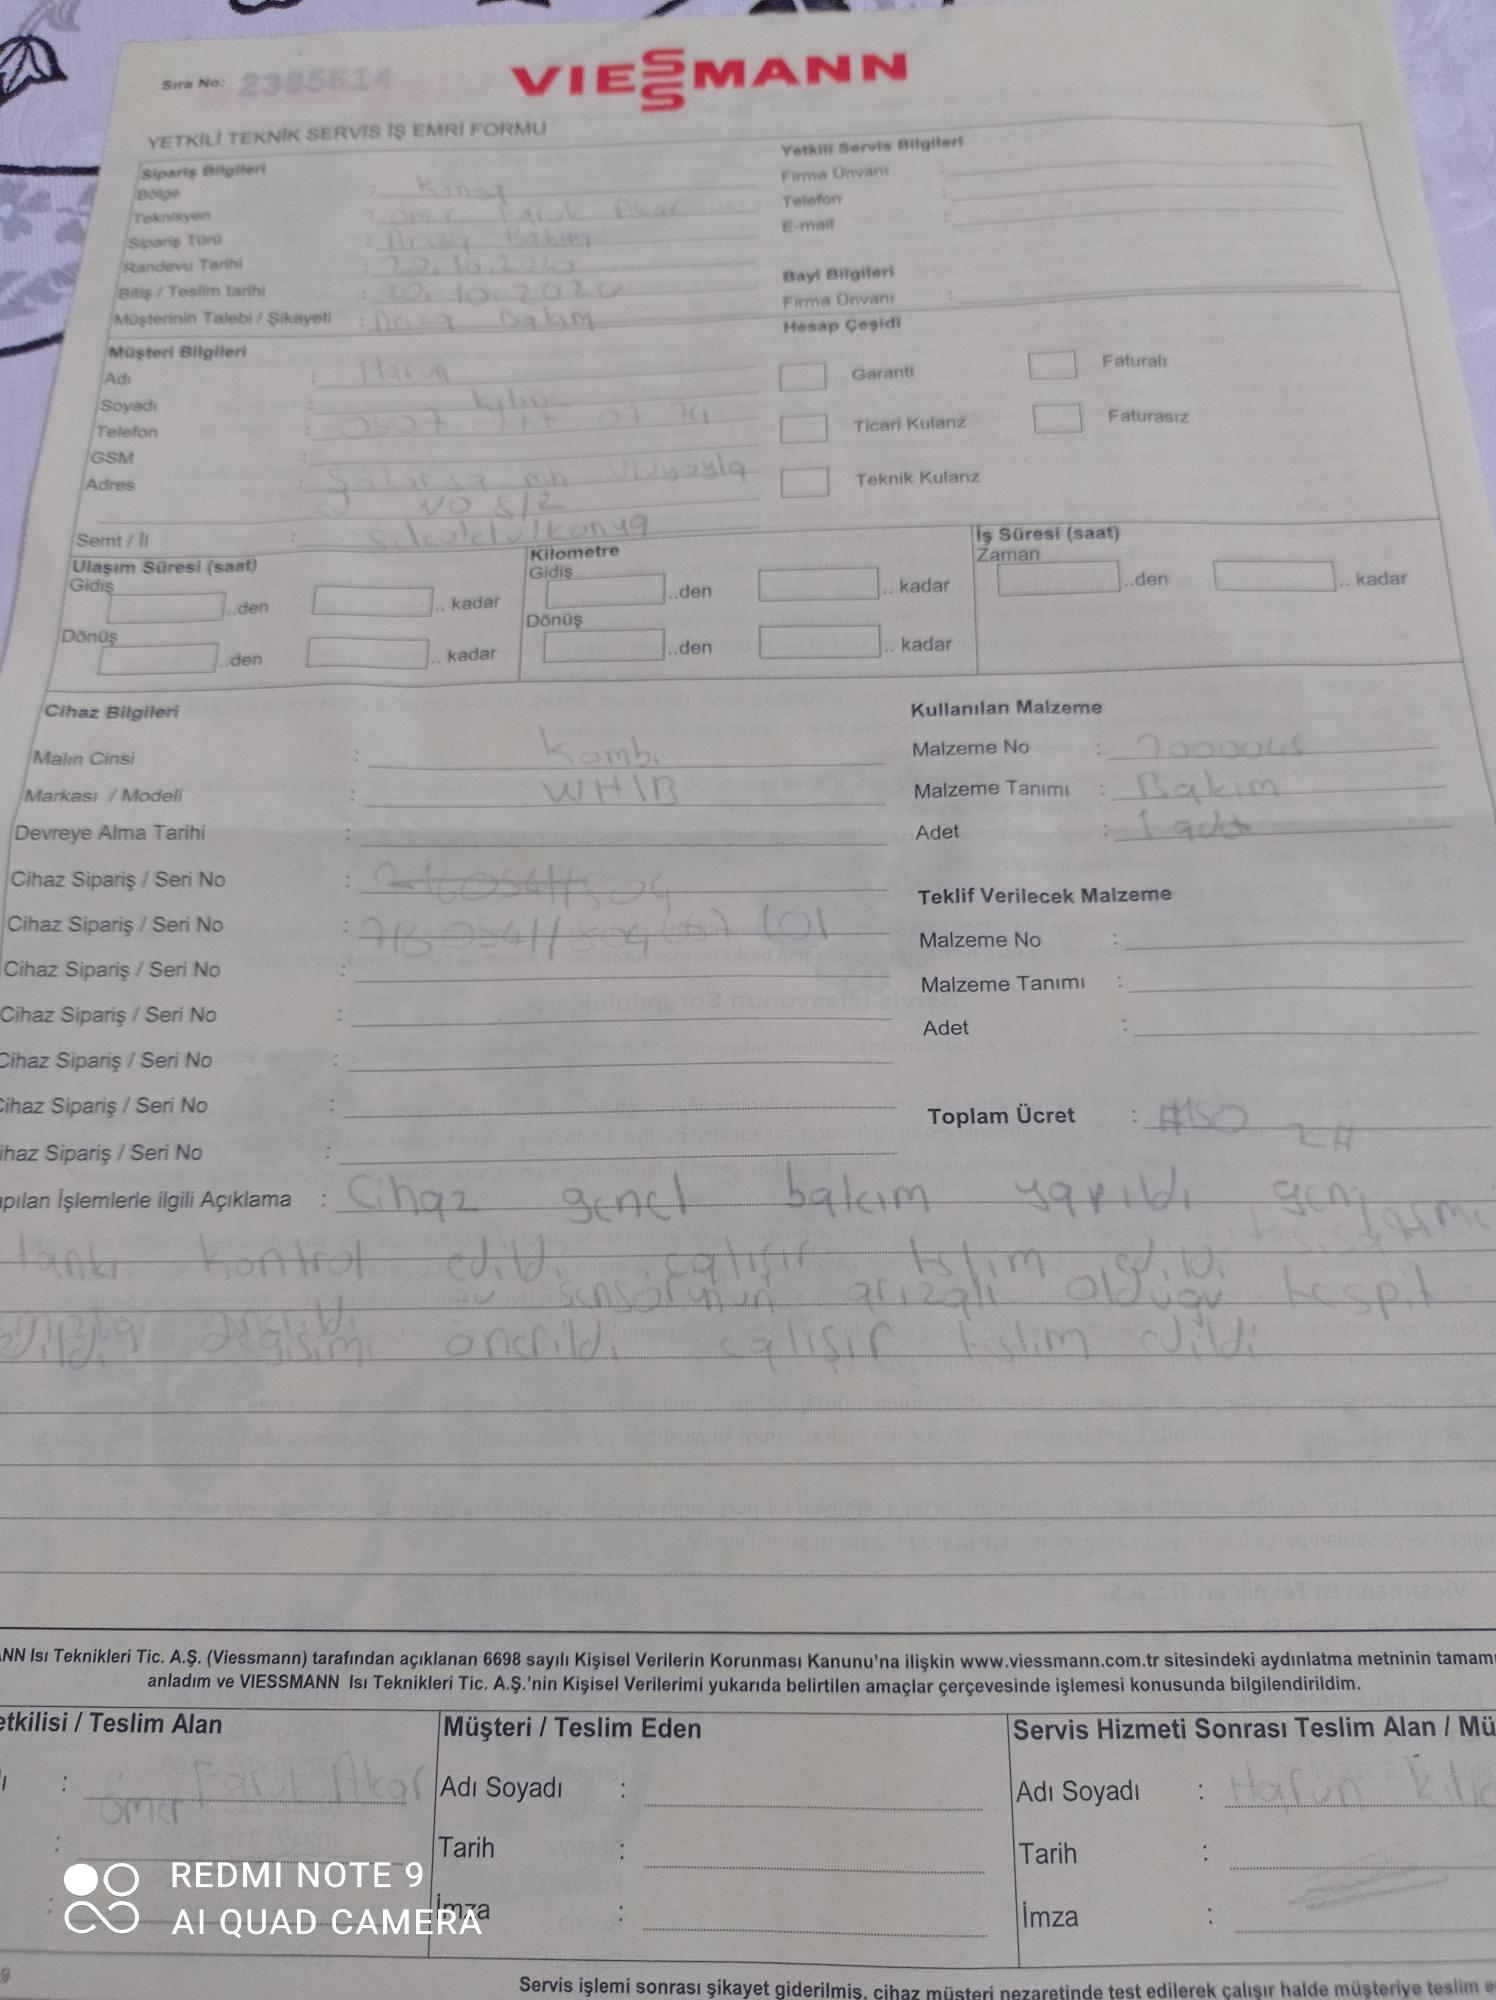 Sıra No: 2385614
VIESSMANN
YETKİLİ TEKNİK SERVİS İŞ EMRİ FORMU
Sipariş Bilgileri
Bölge :
Teknisyen : Ömer Faruk Akar
Sipariş Türü : Arıza Bakım
Randevu Tarihi : 20.10.2020
Bitiş / Teslim tarihi : 20.10.2020
Müşterinin Talebi / Şikayeti : Arıza Bakım
Yetkili Servis Bilgileri
Firma Ünvanı :
Telefon :
E-mail :
Bayi Bilgileri
Firma Ünvanı :
Müşteri Bilgileri
Adı : Harun
Soyadı : Kılıç
Telefon : 0507 777 07 74
GSM :
Adres : mh
No 8/2
Semt / İl : Selçuklu/Konya
Hesap Çeşidi
Garanti Faturalı
Ticari Kulanz Faturasız
Teknik Kulanz
Ulaşım Süresi (saat)
Gidiş
..den .. kadar
Dönüş
..den .. kadar
Kilometre
Gidiş
..den .. kadar
Dönüş
..den .. kadar
İş Süresi (saat)
Zaman
..den .. kadar
Cihaz Bilgileri
Malın Cinsi : Kombi
Markası / Modeli : WH1B
Devreye Alma Tarihi :
Cihaz Sipariş / Seri No :
Cihaz Sipariş / Seri No :
Cihaz Sipariş / Seri No :
Cihaz Sipariş / Seri No :
Cihaz Sipariş / Seri No :
Cihaz Sipariş / Seri No :
ihaz Sipariş / Seri No :
Kullanılan Malzeme
Malzeme No : 7000045
Malzeme Tanımı : Bakım
Adet : 1 adet
Teklif Verilecek Malzeme
Malzeme No :
Malzeme Tanımı :
Adet :
Toplam Ücret : #150
apılan İşlemlerle ilgili Açıklama : Cihaz genel bakım yapıldı genleşme
tankı kontrol edildi çalışır teslim edildi
su sensörünün arızalı olduğu tespit
edildi değişim önerildi çalışır teslim edildi
ANN Isı Teknikleri Tic. A.Ş. (Viessmann) tarafından açıklanan 6698 sayılı Kişisel Verilerin Korunması Kanunu'na ilişkin www.viessmann.com.tr sitesindeki aydınlatma metninin tamamı
anladım ve VIESSMANN Isı Teknikleri Tic. A.Ş.'nin Kişisel Verilerimi yukarıda belirtilen amaçlar çerçevesinde işlemesi konusunda bilgilendirildim.
etkilisi / Teslim Alan
ı : Ömer Faruk Akar
:
:
Müşteri / Teslim Eden
Adı Soyadı :
Tarih :
İmza :
Servis Hizmeti Sonrası Teslim Alan / Mü
Adı Soyadı : Harun Kılıç
Tarih :
İmza :
REDMI NOTE 9
AI QUAD CAMERA
Servis işlemi sonrası şikayet giderilmiş, cihaz müşteri nezaretinde test edilerek çalışır halde müşteriye teslim e